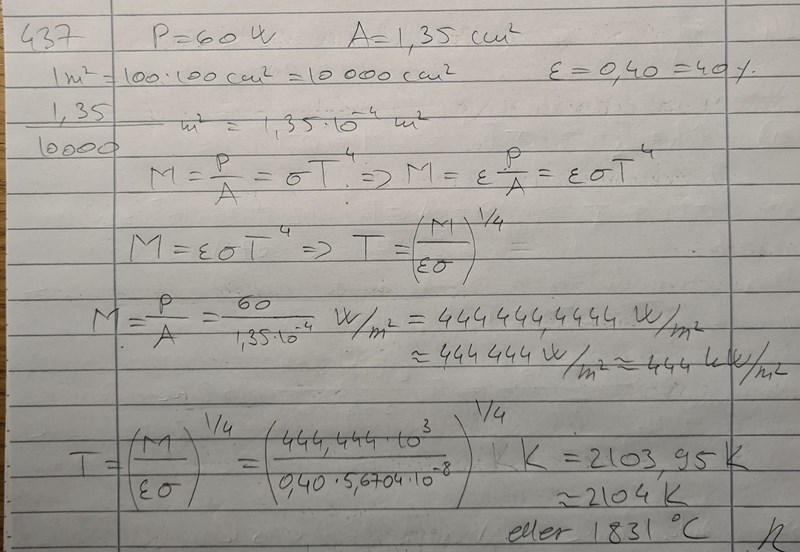 437 P = 60 W A = 1,35 cm²
1 m² = 100·100 cm² = 10 000 cm² ε = 0,40 = 40 %
1,35/10000 m² = 1,35·10⁻⁴ m²
M = P/A = σT⁴ => M = ε P/A = εσT⁴
M = εσT⁴ => T = (M/εσ)^1/4 =
M = P/A = 60/1,35·10⁻⁴ W/m² = 444 444,4444 W/m²
≈ 444 444 W/m² ≈ 444 kW/m²
T = (M/εσ)^1/4 = (444,444·10³/0,40·5,6704·10⁻⁸)^1/4 K = 2103,95 K
≈ 2104 K
eller 1831 °C